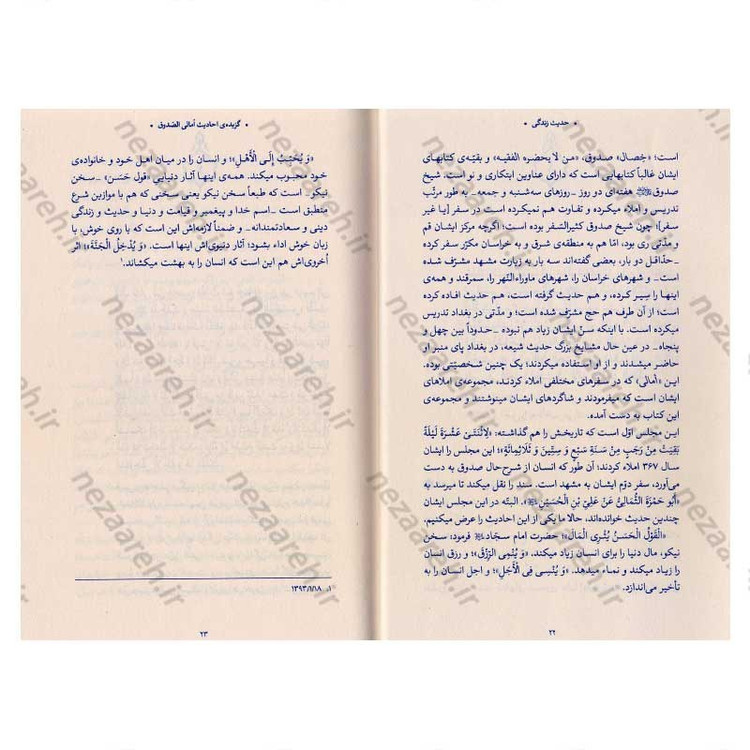 • حدیث زندگی •
است؛ «خصال» صدوق، «من لا یحضره الفقیه» و بقیّه‌ی کتابهای
ایشان غالباً کتابهایی است که دارای عناوین ابتکاری و نو است. شیخ
صدوق هفته‌ای دو روز ـ روزهای سه‌شنبه و جمعه ـ به طور مرتّب
تدریس و املاء میکرده و تفاوت هم نمیکرده است در سفر [یا غیر
سفر]؛ چون شیخ صدوق کثیرالسّفر بوده است؛ اگرچه مرکز ایشان قم
و مدّتی ری بود، امّا هم به منطقه‌ی شرق و به خراسان مکرّر سفر کرده
ـ حدّاقل دو بار، بعضی گفته‌اند سه بار به زیارت مشهد مشرّف شده
است ـ و شهرهای خراسان را، شهرهای ماوراءالنّهر را، سمرقند و همه‌ی
اینها را سِیر کرده، و هم حدیث گرفته است، هم حدیث افاده کرده
است؛ از آن طرف هم حج مشرّف شده است؛ و مدّتی در بغداد تدریس
میکرده است. با اینکه سنّ ایشان زیاد هم نبوده ـ حدوداً بین چهل و
پنجاه ـ در عین حال مشایخ بزرگ حدیث شیعه، در بغداد پای منبر او
حاضر میشدند و از او استفاده میکردند؛ یک چنین شخصیّتی بوده.
این «أمالی» که در سفرهای مختلفی املاء کردند، مجموعه‌ی املاهای
ایشان است که میفرمودند و شاگردهای ایشان مینوشتند و مجموعه‌ی
این کتاب به دست آمده.
این مجلس اوّل است که تاریخش را هم گذاشته: «لِاثنَتَی عَشَرَةَ لَیلَةً
بَقِیَت مِن رَجَبٍ مِن سَنَةِ سَبعٍ وَ سِتّینَ وَ ثَلاثِمِائَة»؛ این مجلس را ایشان
سال ۳۶۷ املاء کردند؛ آن طور که انسان از شرح‌حال صدوق به دست
می‌آورد، سفر دوّم ایشان به مشهد است. سند را نقل میکند تا میرسد به
«أبو حَمزَةَ الثُّمالِیُّ عَن عَلِیِّ بنِ الحُسَینِ». البتّه در این مجلس ایشان
چندین حدیث خوانده‌اند، حالا ما یکی از این احادیث را عرض میکنیم.
«اَلقَولُ الحَسَنُ یُثرِی المالَ»؛ حضرت امام سجّاد فرمود: سخن
نیکو، مال دنیا را برای انسان زیاد میکند. «وَ یُنمِی الرِّزقَ»؛ و رزق انسان
را زیاد میکند و نماء میدهد. «وَ یُنسِی فِی الأَجَلِ»؛ و اجل انسان را به
تأخیر می‌اندازد.
۲۲
• گزیده‌ی احادیث أمالی الصّدوق •
«وَ یُحَبِّبُ إلَی الأَهلِ»؛ و انسان را در میان اهل خود و خانواده‌ی
خود محبوب میکند. همه‌ی اینها آثار دنیایی «قول حَسَن» ـ سخن
نیکو ـ است که طبعاً سخن نیکو یعنی سخنی که هم با موازین شرع
منطبق است ـ اسم خدا و پیغمبر و قیامت و دنیا و حدیث و زندگی
دینی و سعادتمندانه ـ و ضمناً لازمه‌اش این است که با روی خوش، با
زبان خوش اداء بشود؛ آثار دنیوی‌اش اینها است. «وَ یُدخِلُ الجَنَّةَ»؛ اثر
اُخروی‌اش هم این است که انسان را به بهشت میکشاند.۱
۱. ۱۳۹۳/۱/۱۸
۲۳
nezaareh.ir
nezaareh.ir
nezaareh.ir
nezaareh.ir
nezaareh.ir
nezaareh.ir
nezaareh.ir
nezaareh.ir
nezaareh.ir